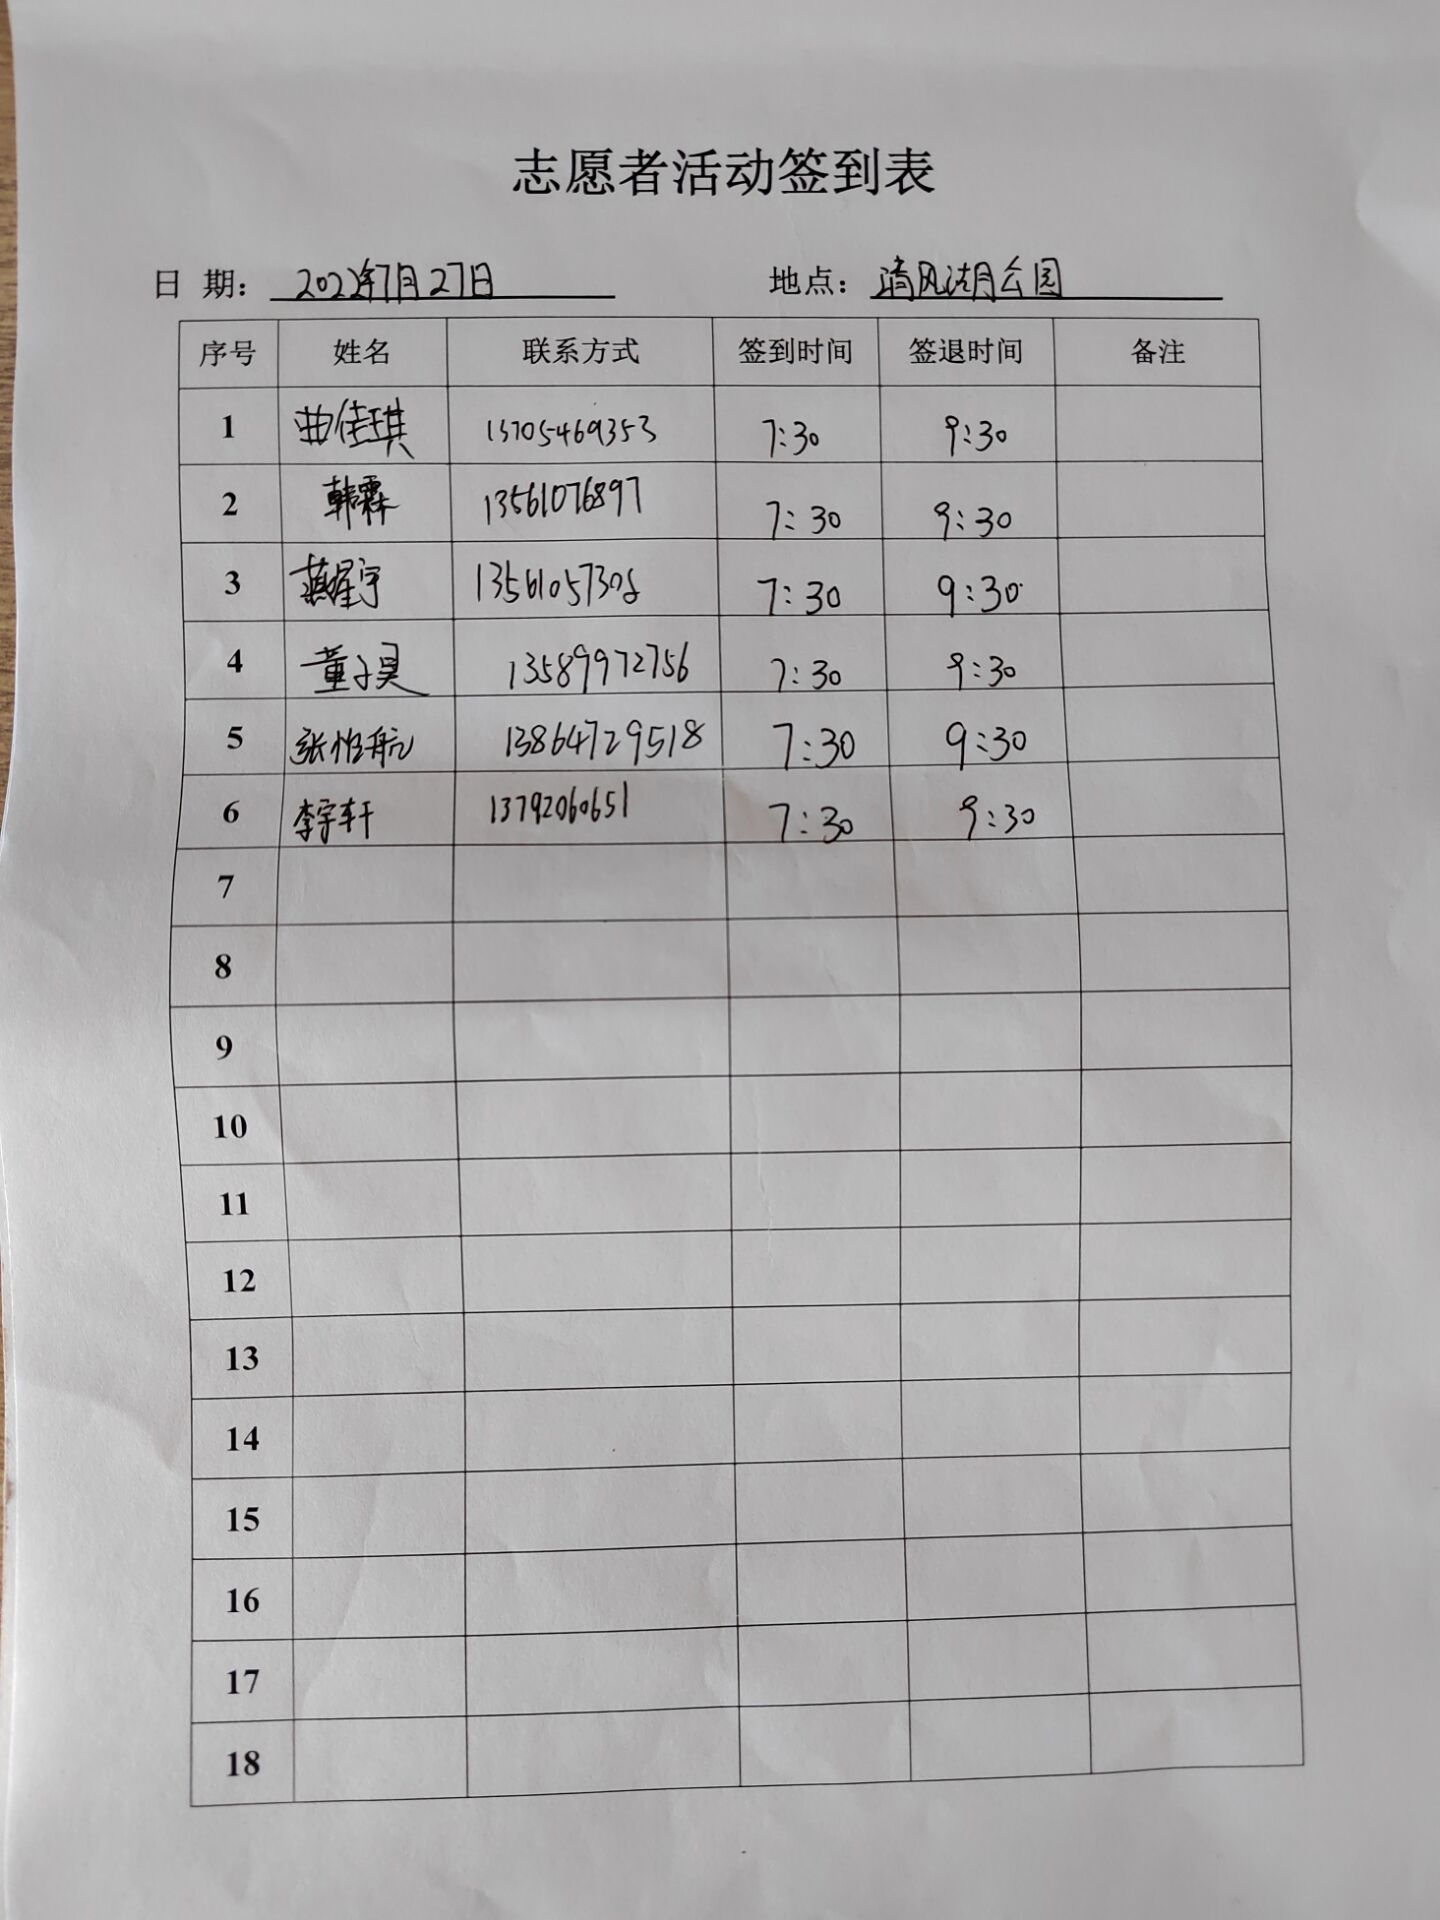 志愿者活动签到表
日 期： 2022年7月27日 地点：清风湖公园
序号 姓名 联系方式 签到时间 签退时间 备注
1 曲佳琪 13705469353 7:30 9:30
2 韩霖 13561076897 7:30 9:30
3 星宇 1356105730 7:30 9:30
4 董子昊 13589972756 7:30 9:30
5 张惟航 13864729518 7:30 9:30
6 李宇轩 13792060651 7:30 9:30
7
8
9
10
11
12
13
14
15
16
17
18